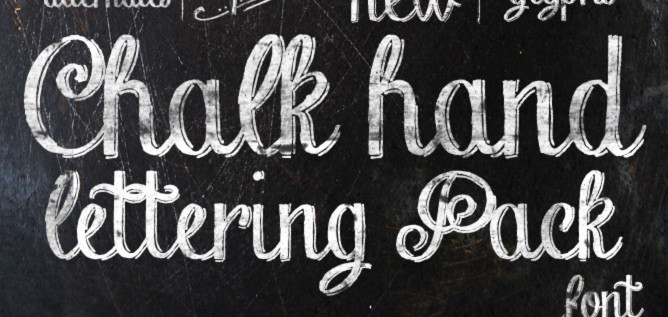 alternates new glyphs
Chalk hand
lettering Pack
font